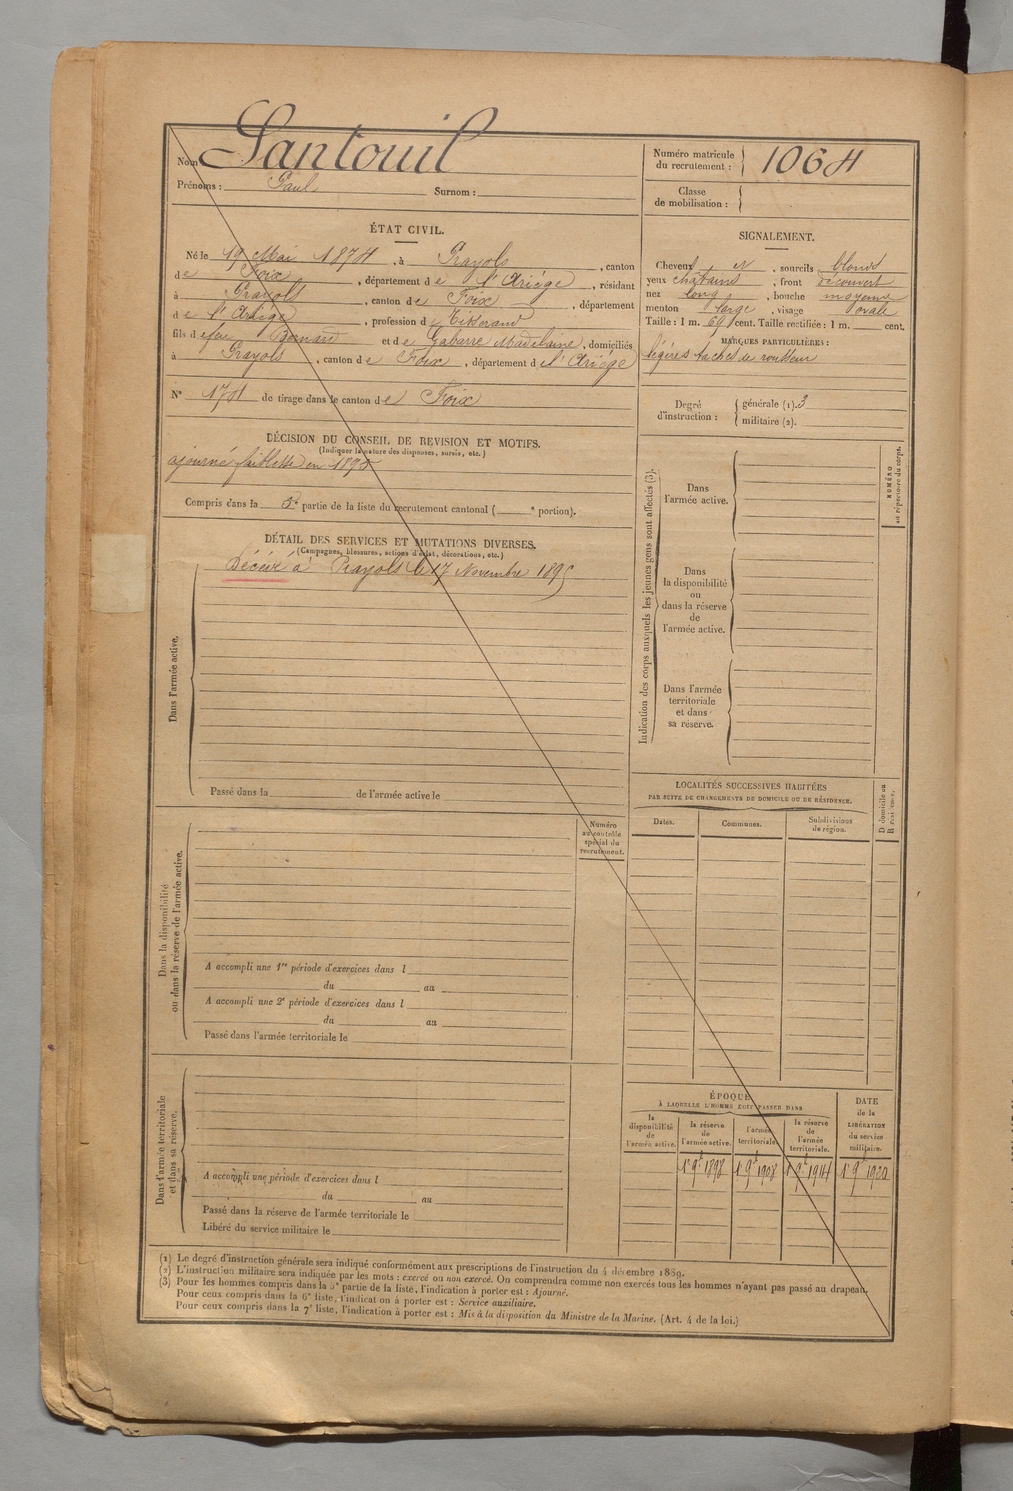 Nom Santouil
Prénoms : Paul Surnom :
Numéro matricule du recrutement : 1064
Classe de mobilisation :
ÉTAT CIVIL.
Né le 19 Mai 1874, à Prayols, canton
de Foix, département de l'Ariège, résidant
à Prayols, canton de Foix, département
de l'Ariège, profession d
fils de feu Bernard et de Gabarre Madelaine, domiciliés
à Prayols, canton de Foix, département de l'Ariège
N° de tirage dans le canton de Foix
DÉCISION DU CONSEIL DE REVISION ET MOTIFS.
(Indiquer la nature des dispenses, sursis, etc.)
ajourné faiblesse en 1895
Compris dans la 5e partie de la liste du recrutement cantonal ( e portion).
DÉTAIL DES SERVICES ET MUTATIONS DIVERSES.
(Campagnes, blessures, actions d'éclat, décorations, etc.)
Décédé à Prayols le 17 Novembre 1895
Dans l'armée active.
Passé dans la de l'armée active le
Numéro au contrôle spécial du recrutement.
Dans la disponibilité ou dans la réserve de l'armée active.
A accompli une 1re période d'exercices dans l
du au
A accompli une 2e période d'exercices dans l
du au
Passé dans l'armée territoriale le
Dans l'armée territoriale et dans sa réserve.
A accompli une période d'exercices dans l
du au
Passé dans la réserve de l'armée territoriale le
Libéré du service militaire le
SIGNALEMENT.
Cheveux et, sourcils blonds
yeux chatains, front découvert
nez long, bouche moyenne
menton large, visage ovale
Taille : 1 m. 69 cent. Taille rectifiée : 1 m. cent.
MARQUES PARTICULIÈRES :
légères taches de rousseur
Degré d'instruction :
générale (1). 3
militaire (2).
Indication des corps auxquels les jeunes gens sont affectés (3).
NUMÉRO au répertoire du corps.
Dans l'armée active.
Dans la disponibilité ou dans la réserve de l'armée active.
Dans l'armée territoriale et dans sa réserve.
LOCALITÉS SUCCESSIVES HABITÉES
PAR SUITE DE CHANGEMENTS DE DOMICILE OU DE RÉSIDENCE.
Dates. Communes. Subdivisions de région. D domicile ou R résidence.
ÉPOQUE
À LAQUELLE L'HOMME DOIT PASSER DANS
la disponibilité de l'armée active.
la réserve de l'armée active.
l'armée territoriale.
la réserve de l'armée territoriale.
DATE de la LIBÉRATION du service militaire.
1 9e 1898 1 9e 1908 1 9e 1914 1 9e 1920
(1) Le degré d'instruction générale sera indiqué conformément aux prescriptions de l'instruction du 4 décembre 1889.
(2) L'instruction militaire sera indiquée par les mots : exercé ou non exercé. On comprendra comme non exercés tous les hommes n'ayant pas passé au drapeau.
(3) Pour les hommes compris dans la 5e partie de la liste, l'indication à porter est : Ajourné.
Pour ceux compris dans la 6e liste, l'indication à porter est : Service auxiliaire.
Pour ceux compris dans la 7e liste, l'indication à porter est : Mis à la disposition du Ministre de la Marine. (Art. 4 de la loi.)